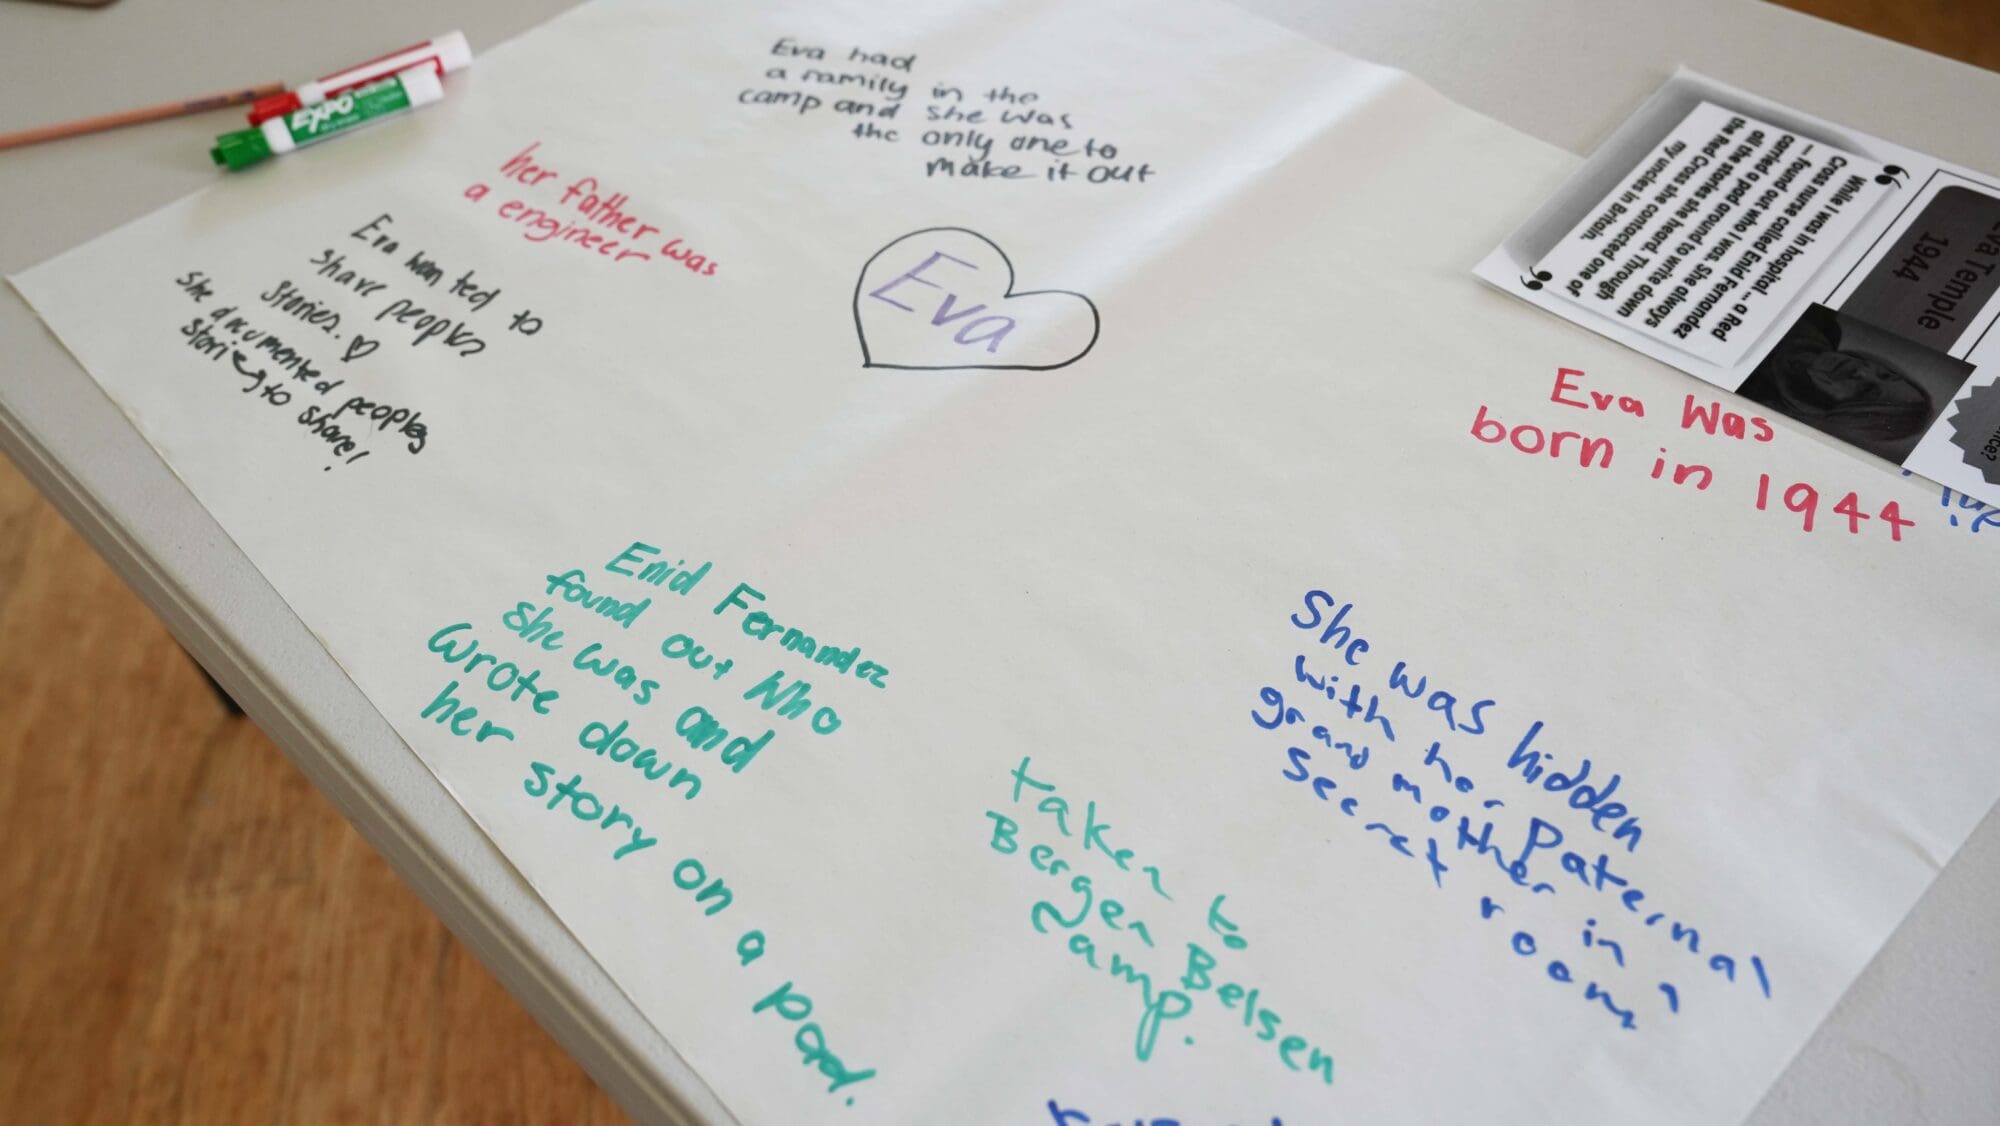 EXPO
Eva had
a family in the
camp and she was
the only one to
make it out
her father was
a engineer
Eva wanted to
share peoples
stories. ♡
She documented peoples
stories to share!
Eva
“
While I was in hospital ... a Red
Cross nurse called Enid Fernandez
– found out who I was. She always
carried a pad around to write down
all the stories she heard. Through
the Red Cross she contacted one of
my uncles in Britain.
”
Eva Temple
1944
Eva Was
born in 1944
Enid Fernandez
found out Who
she was and
wrote down
her story on a pad.
She was hidden
with her Paternal
grand mother in a
secret room
taken to
Bergen Belsen
camp.